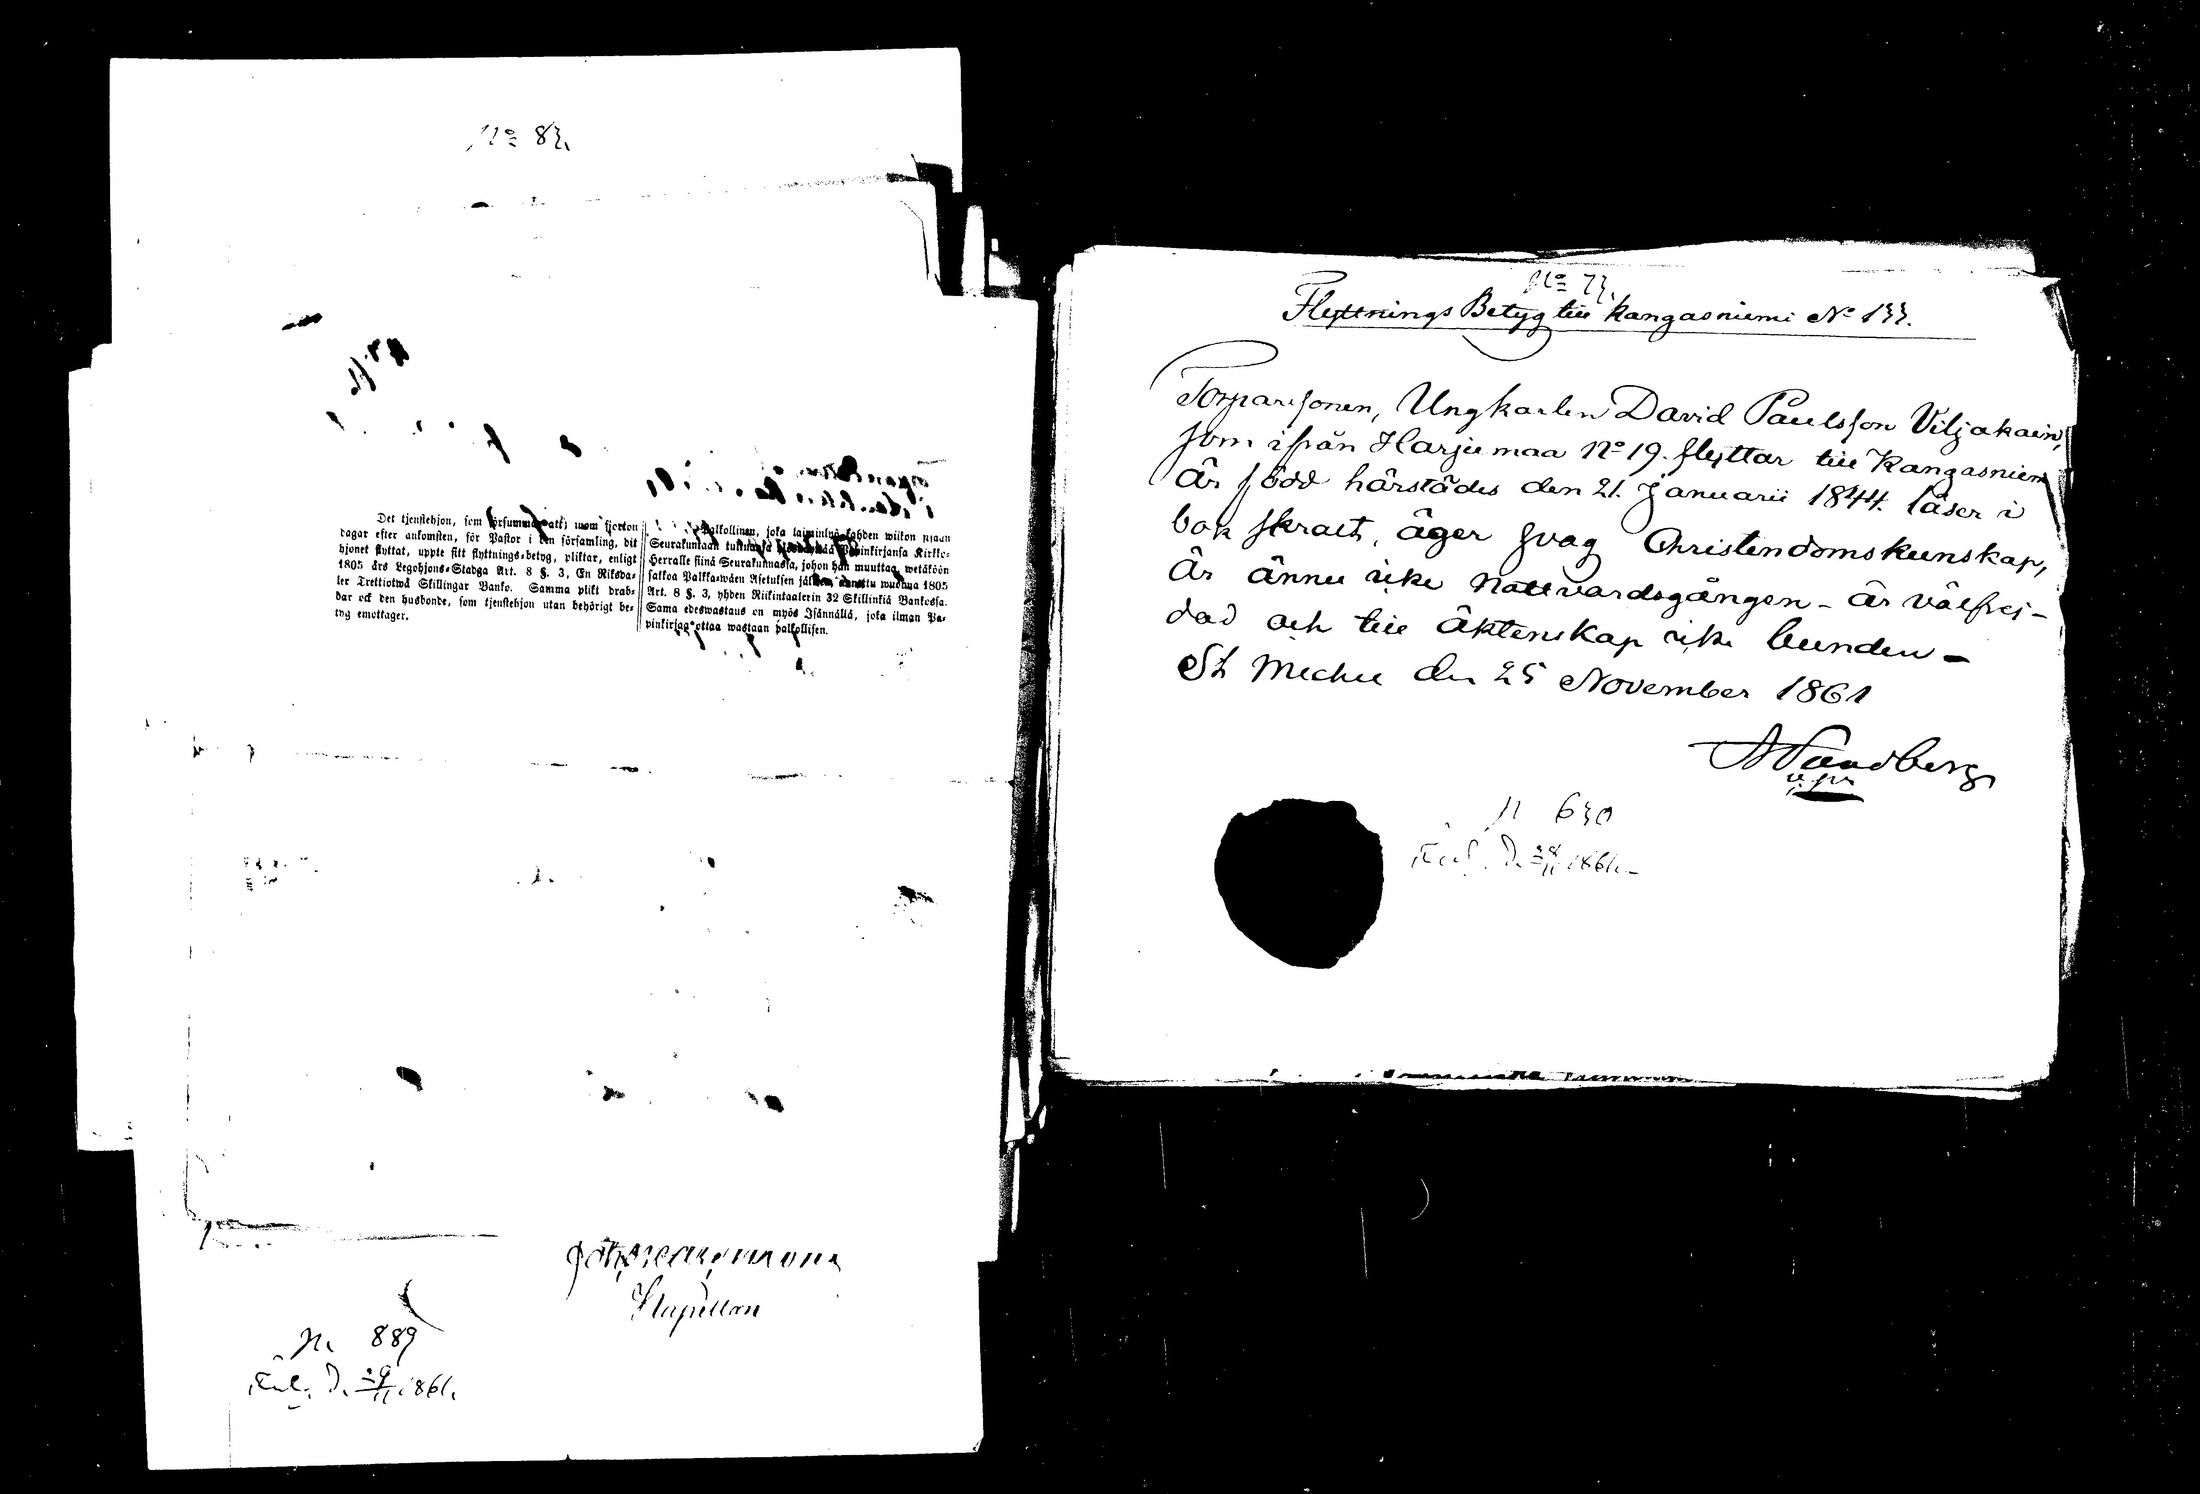 No 83.
Det tjenstehjon, som försummar att, inom fjorton
dagar efter ankomsten, för Pastor i den församling, dit
hjonet flyttat, uppte sitt flyttnings-betyg, pliktar, enligt
1805 års Legohjons-Stadga Art. 8 §. 3, En Riksda-
ler Trettiotwå Skillingar Banko. Samma plikt drab-
bar ock den husbonde, som tjenstehjon utan behörigt be-
tyg emottager.
Palkollinen, joka laiminlyö kahden wiikon
Seurakuntaan Papinkirjansa Kirkko-
Herralle siinä Seurakunnassa, johon hän muuttaa, wetäköön
sakkoa Palkka-wäen Asetuksen jälkeen wuonna 1805
Art. 8 §. 3, yhden Riikintaalerin 32 Skillinkiä Bankossa.
Sama edeswastaus on myös Isännällä, joka ilman Pa-
pinkirjaa ottaa wastaan palkollisen.
Kapellan
N. 889
Inl. D. 29/11 1861.
No 73.
Flyttnings Betyg till Kangasniemi No 133.
Torparesonen, Ungkarlen David Paulsson Viljakain,
som ifrån Harjumaa No 19. flyttar till Kangasniemi
är född härstädes den 21. Januarii 1844. läser i
bok skralt, äger svag Christendomskunskap,
är ännu icke Nattvardsgången - är välfrej-
dad och till äktenskap icke bunden -
St Michel den 25 November 1861
A Sandberg
v. pr
N 630
Inl. D. 28/11 1861.-